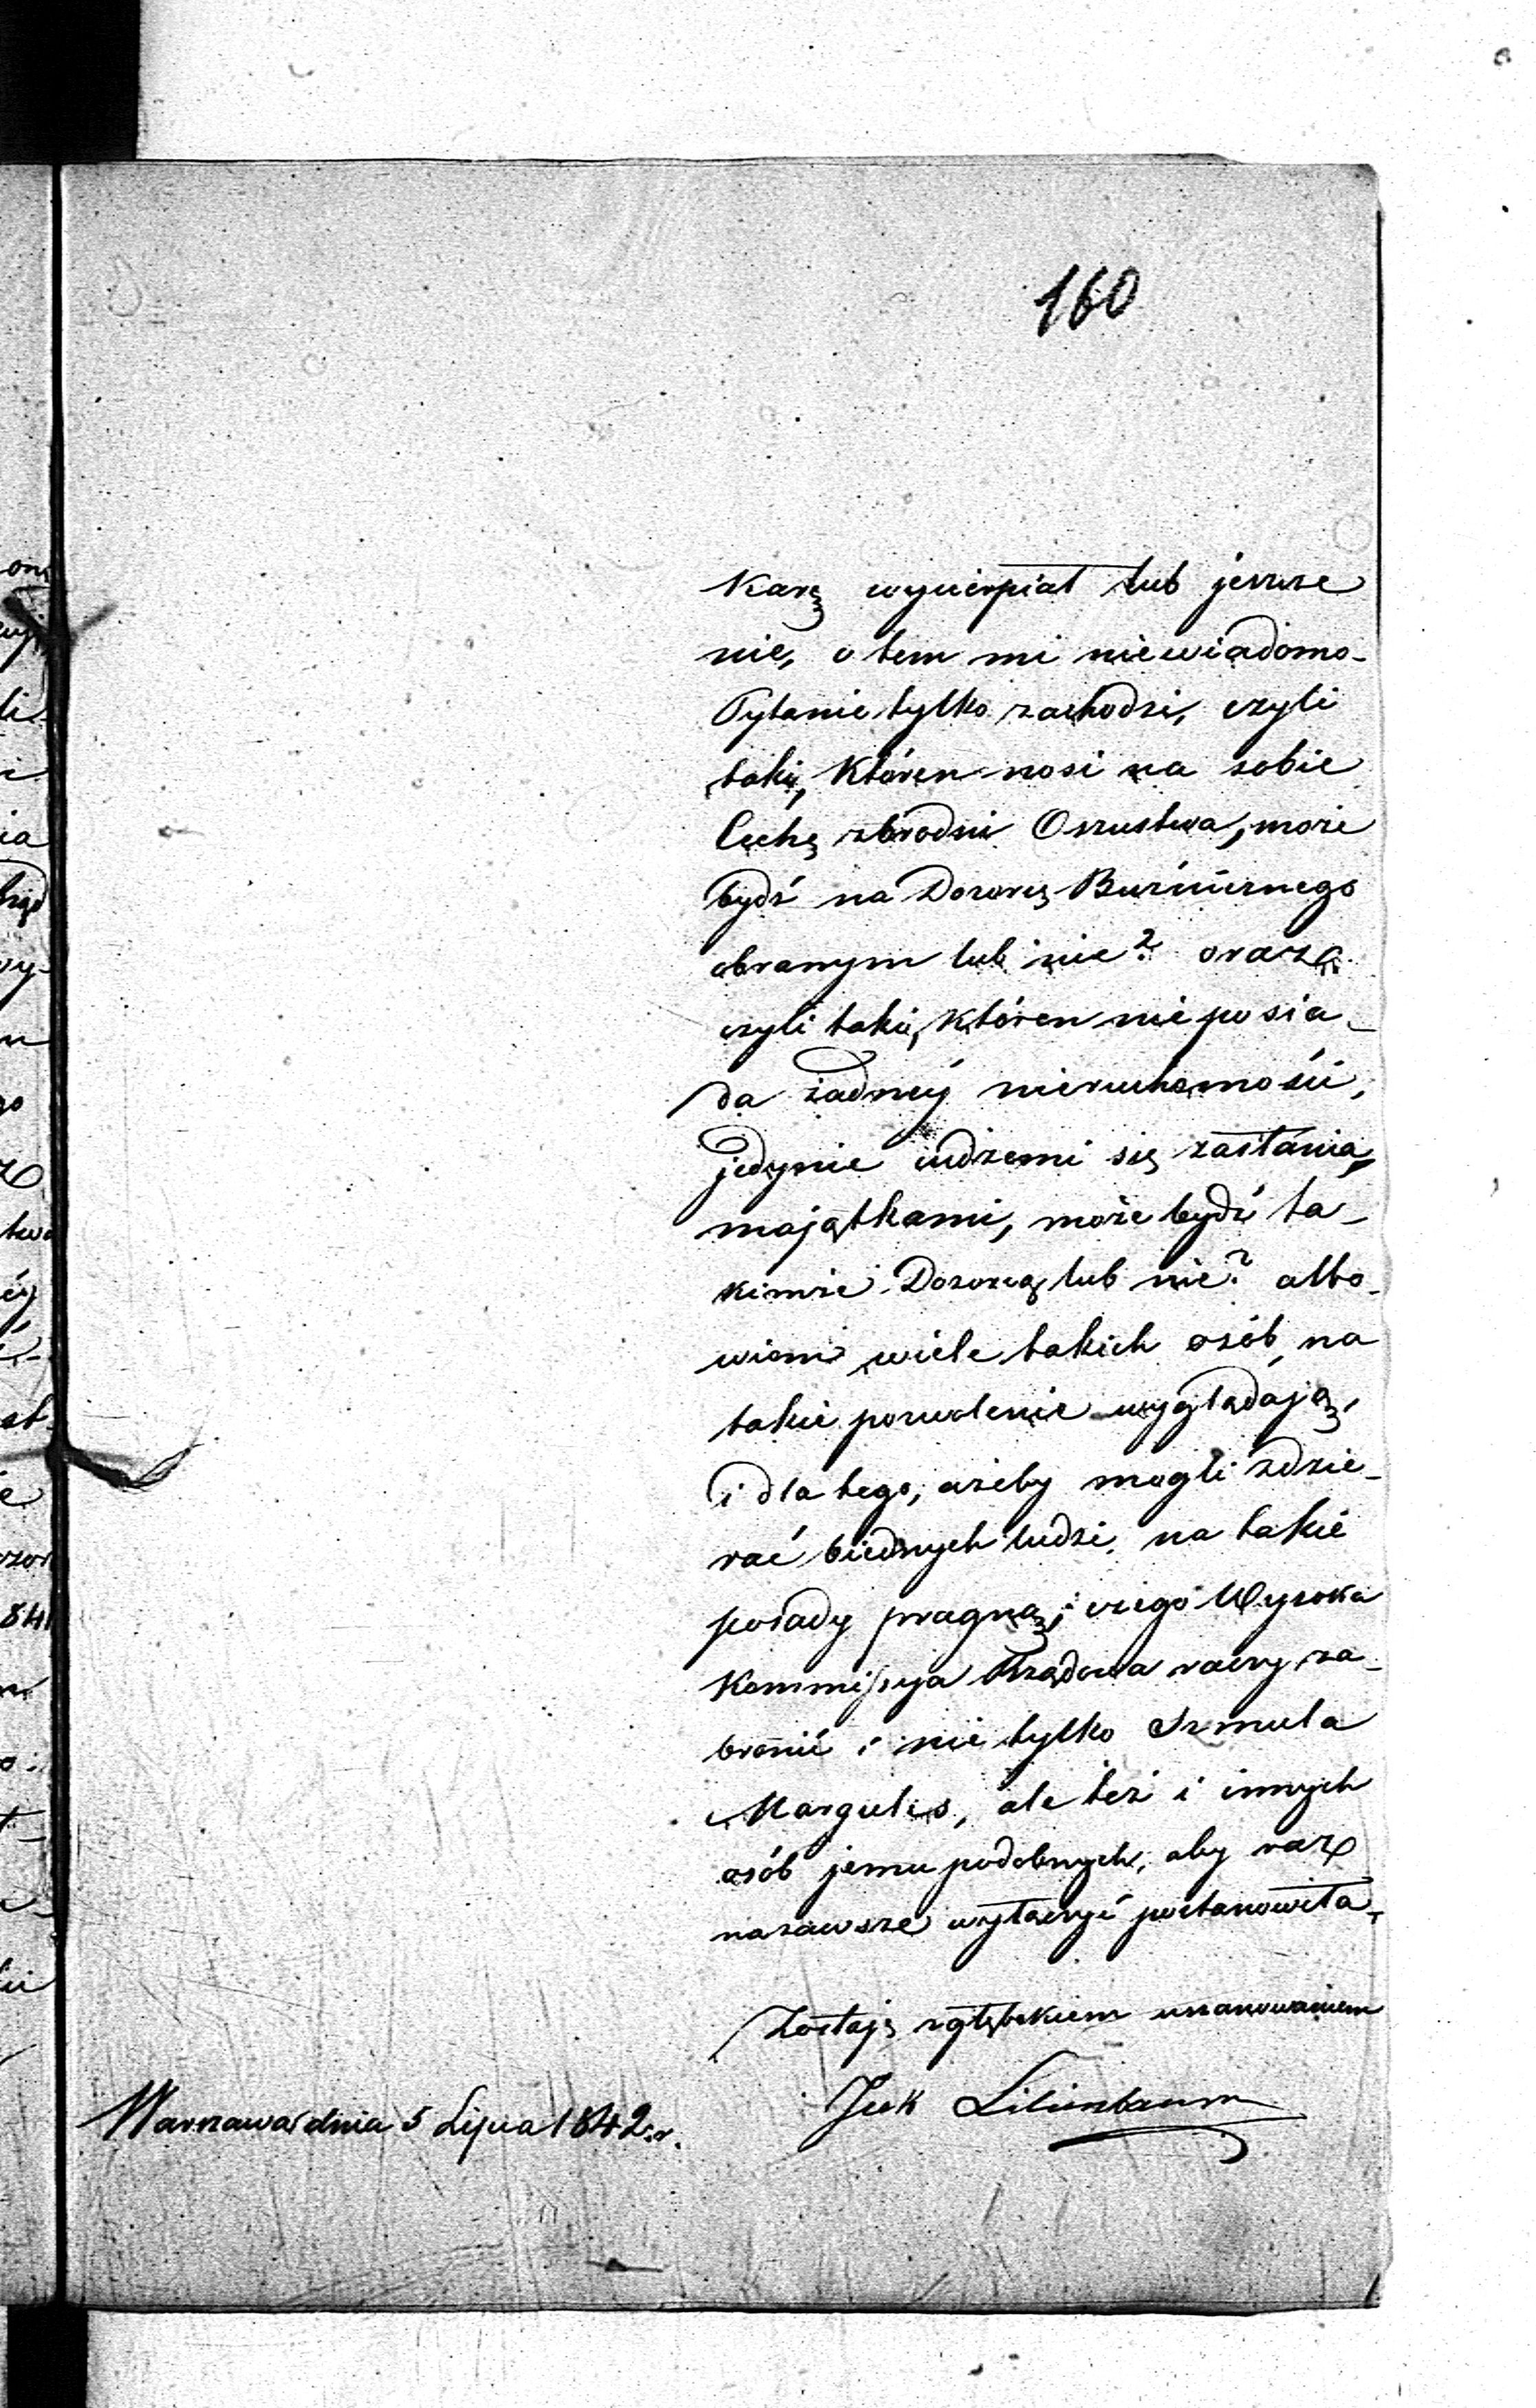 160
Karę wycierpiał lub jeszcze
nie, o tem mi niewiadomo.
Pytanie tylko zachodzi, czyli
taki, któren nosi na sobie
Cechę zbrodni Oszustwa, może
bydź na Dozorcę Bużnicznego
obranym lub nie? oraz
czyli taki, któren nie posia-
da żadnéy nieruchomości,
jedynie cudzemi się zasłania
majątkami, może bydź ta-
kimże Dozorcą lub nie? albo-
wiem wiele takich osób na
takie pozwolenie wyglądają,
i dla tego, ażeby mogli zdzie-
rać biednych ludzi, na takie
posady pragną; czego Wysoka
Kommissya Rządowa raczy za-
bronić i nie tylko Szmula
Margules, ale też i innych
osób jemu podobnych, aby raz
nazawsze wyłączyć postanowiła.
Zostaję z głębokiem uszanowaniem
Warszawa dnia 5 Lipca 1842 r.
Jcek